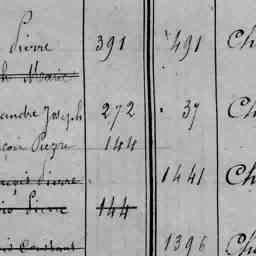 Pierre 391 491 Ch
h Marie
andre Joseph 272 37 Ch
çois Pierre 144
çois Pierre 1441 Ch
çois Pierre 144
ois Constant 1396 Ch